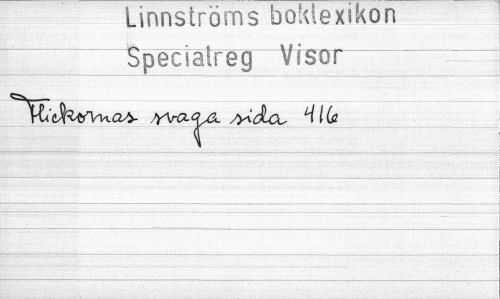 Linnströms boklexikon
Specialreg Visor
Flickornas svaga sida 416